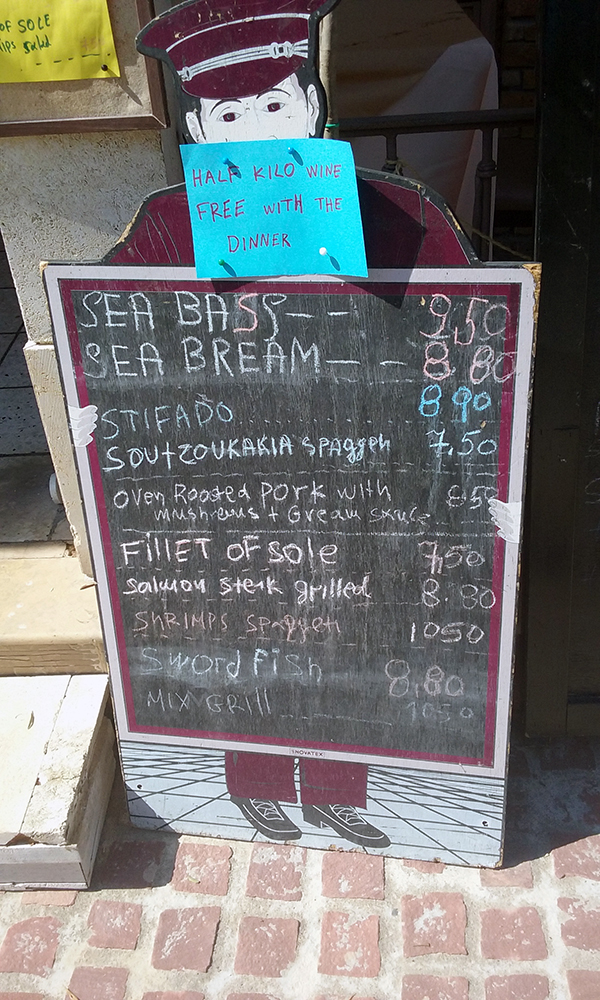 OF SOLE
HALF KILO WINE
FREE WITH THE
DINNER
SEA BASS-- 9,50
SEA BREAM--- 8.80
STIFADO........ 8,90
SOUTZOUKAKIA SPAggeti 7,50
OVEN Roosted PORK WITH 8.5
mushrems + Gream sauce
FillET OF Sole 7,50
Salmon Sterk grilled 8.80
SHRIMPS SPaggeti 1050
SWORd FiSh 8,80
MIX GRill 1050
INOVATEX